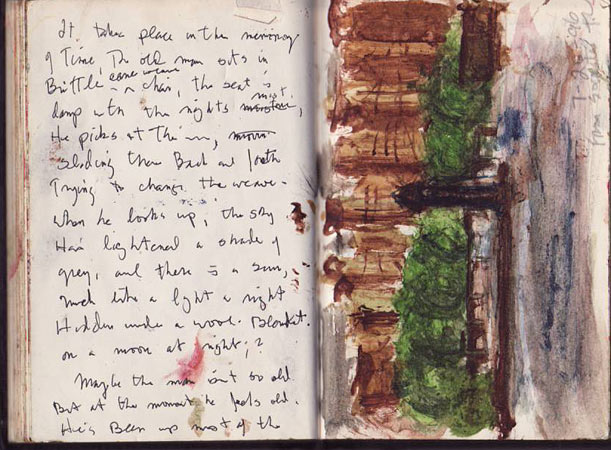 It takes place in the memory
of Time, The old man sits in
Brittle cane weave chair, the seat is
damp with the nights moisture mist,
He picks at The, 
sliding them Back and forth
Trying to change the weave.
when he looks up, the sky
Has lightened a shade of
grey, and there is a sun,
much like a light a night
Hidden under a wool Blanket.
or a moon at night, ?
Maybe the man isnt so old
But at the moment he feels old.
He's Been up most of the
1-22-96
from